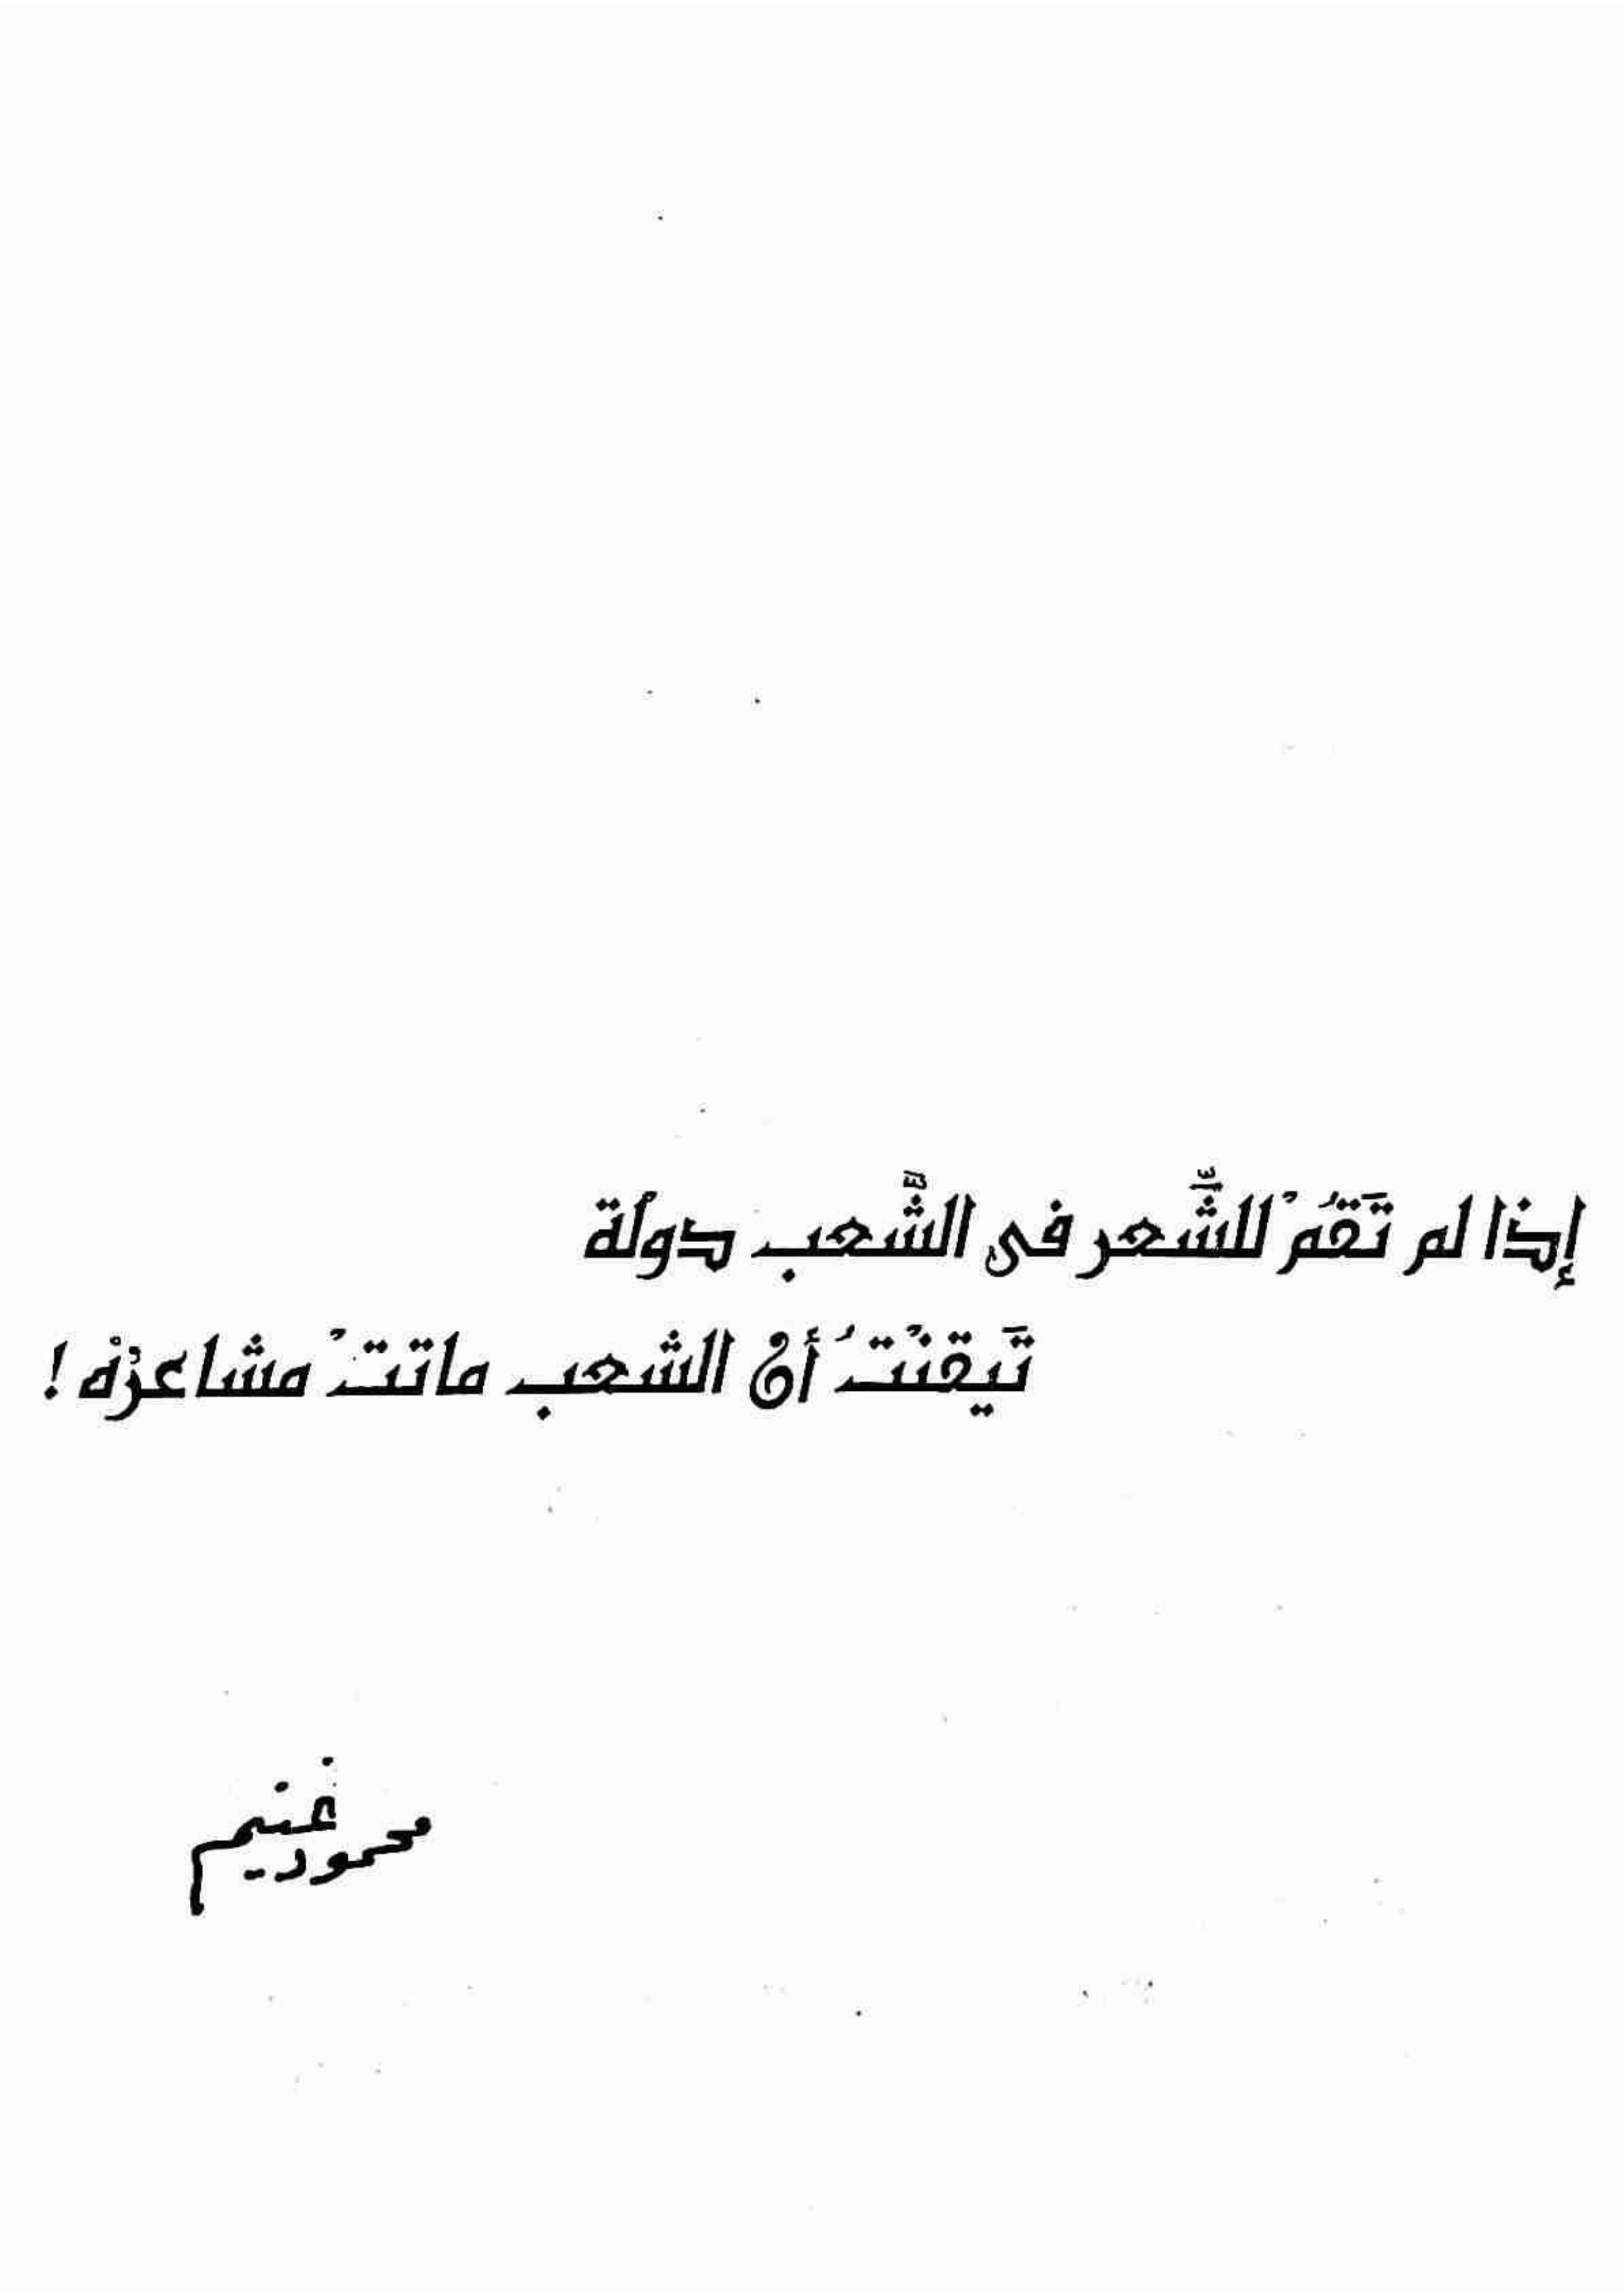 إذا لم تَقُمْ للشِّعر فى الشَّعب دولة
تَيقنْتُ أن الشعب ماتتْ مشاعرُه !
محمود غنيم